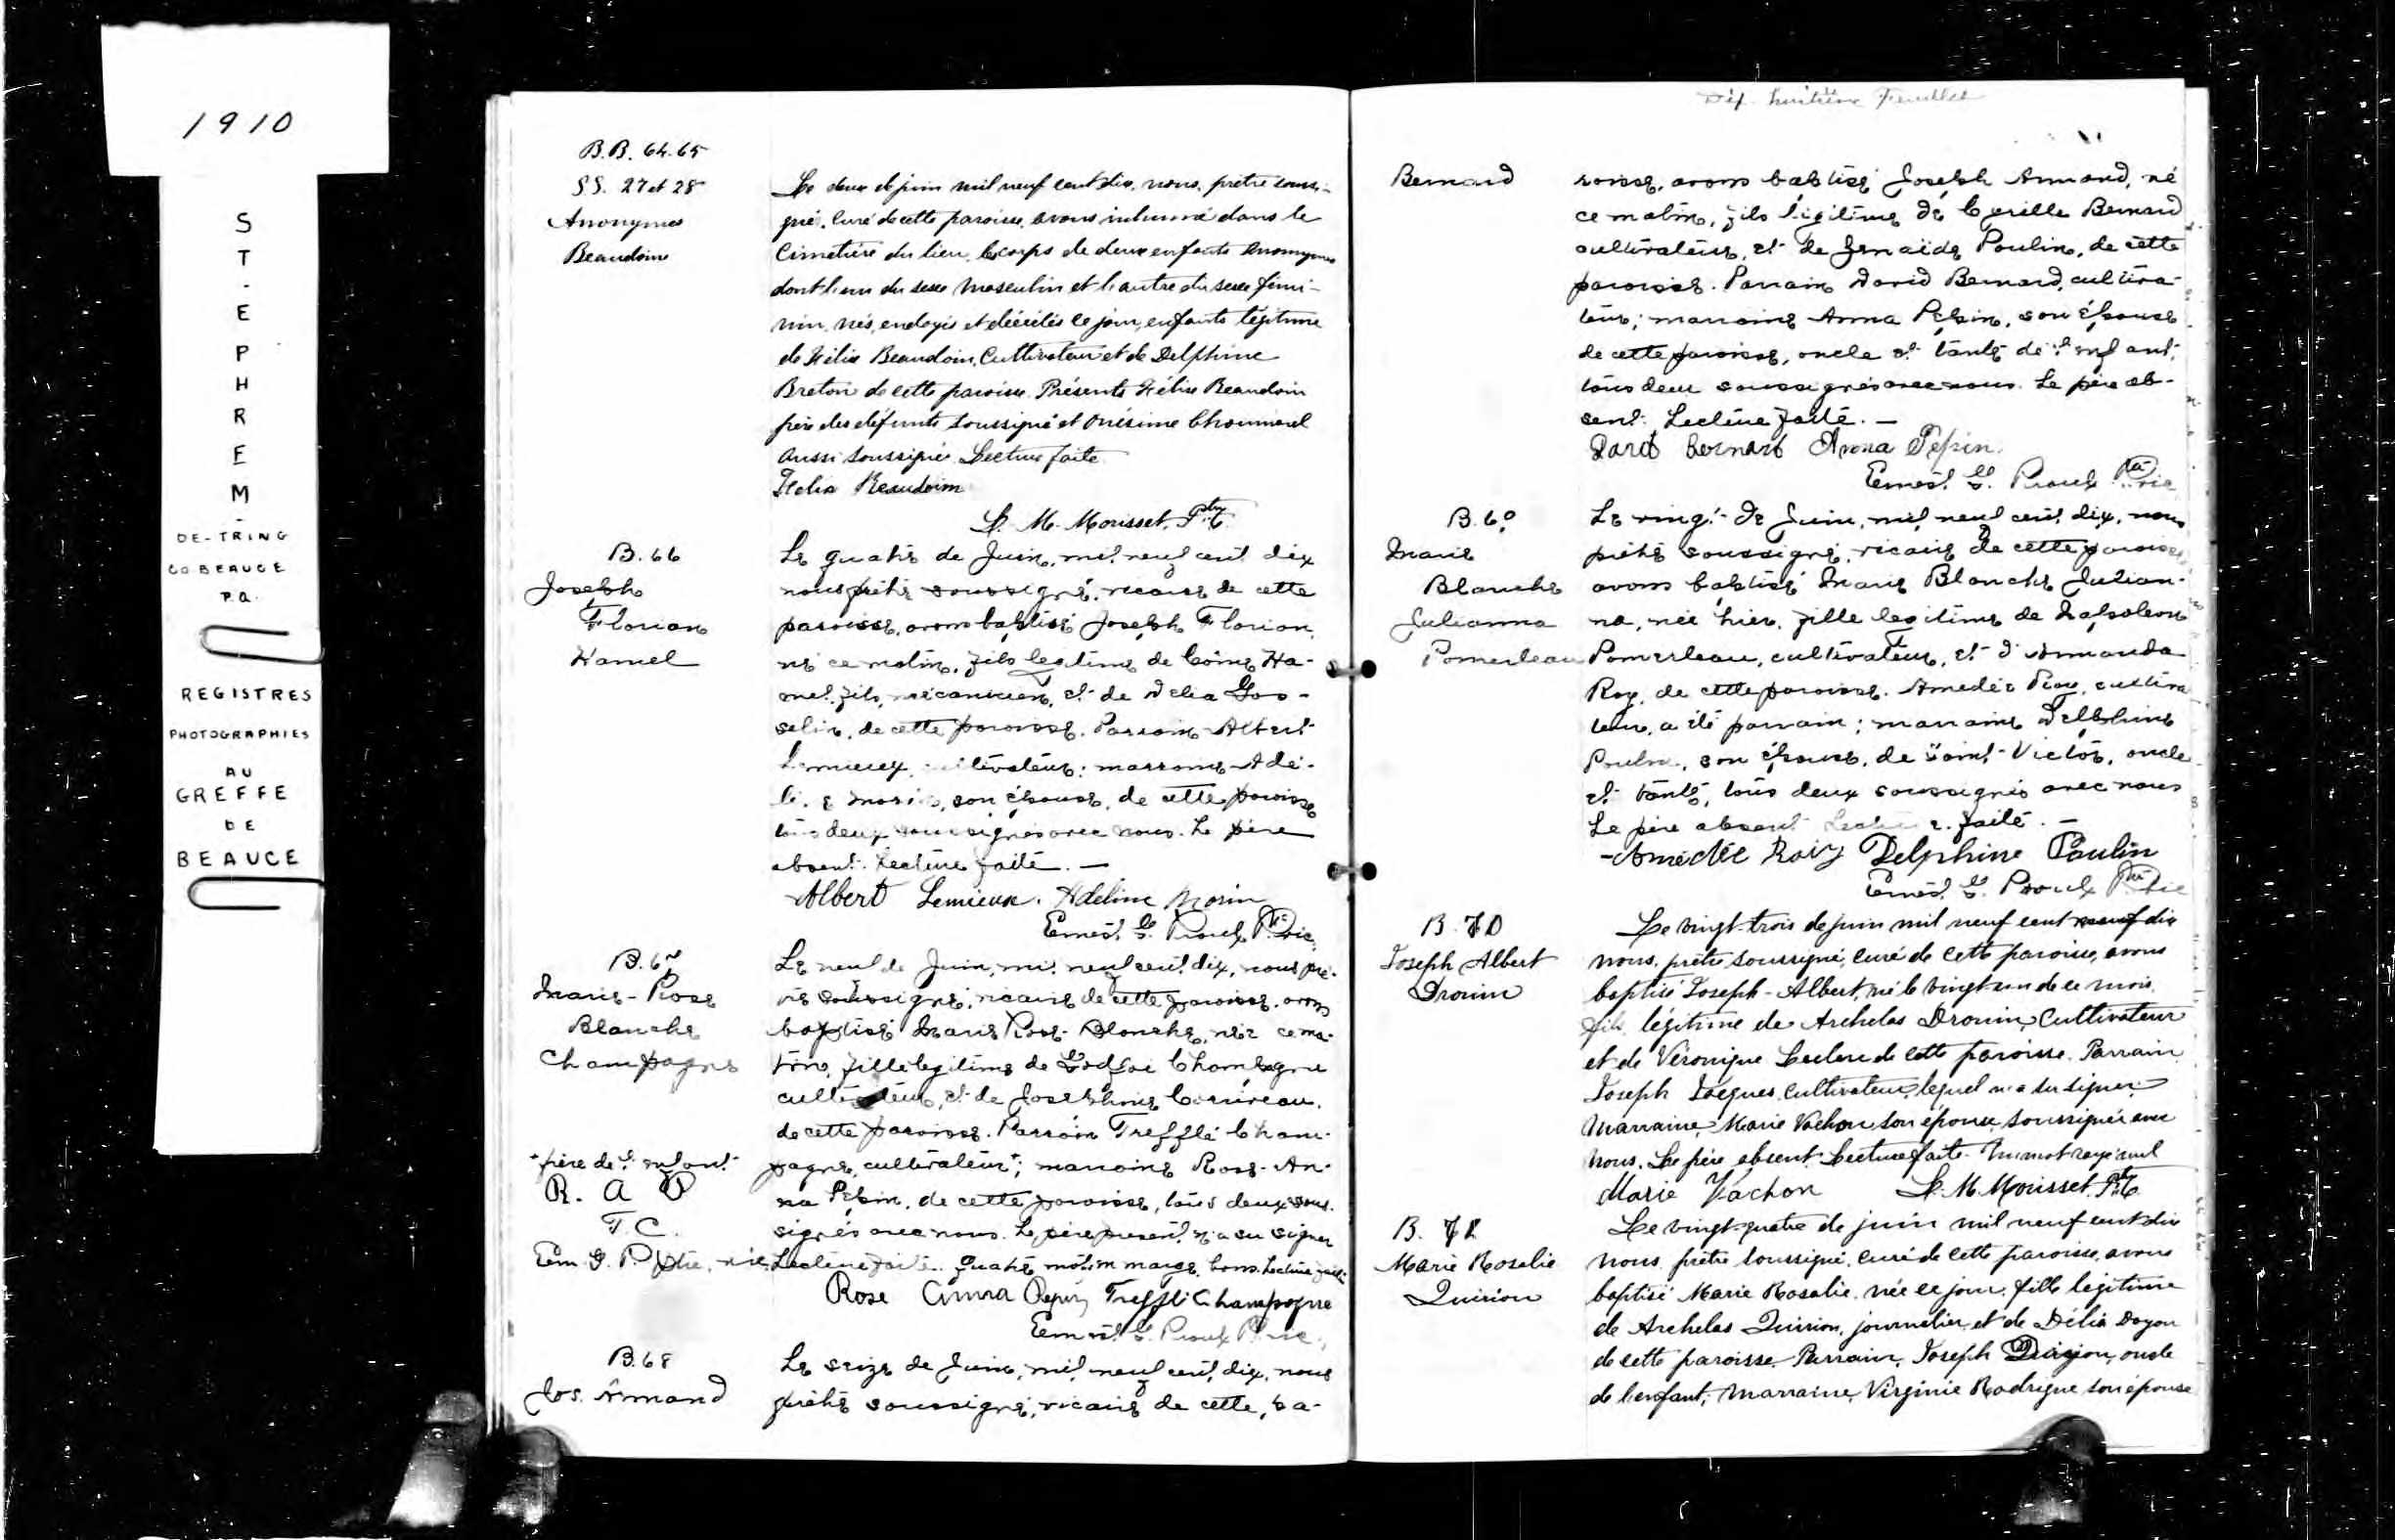 1910
S
T
.
E
P
H
R
E
M
-
DE-TRING
CO BEAUCE
P.Q.
REGISTRES
PHOTOGRAPHIES
AU
GREFFE
DE
BEAUCE
B.B. 64.65
SS. 27 et 28
Anonymes
Beaudoin
Le deux de juin mil neuf cent dix, nous, prêtre soussi-
gné, curé de cette paroisse, avons inhumé dans le
Cimetière du lieu, le corps de deux enfants anonymes
dont l'un du sexe masculin et l'autre du sexe fémi-
nin, nés, ondoyés et décédés ce jour, enfants légitime
de Félix Beaudoin, Cultivateur et de Delphine
Breton de cette paroisse. Présents Félix Beaudoin
père des défunts soussigné et Onésime
aussi soussigné. Lecture faite.
Felix Beaudoin
L. M. Morisset, Ptre
B. 66
Joseph
Florian
Hamel
Le quatre de Juin, mil neuf cent dix
nous prêtre soussigné, vicaire de cette
paroisse, avons baptisé Joseph Florian,
né ce matin, fils legitime de Côme Ha-
mel, fils, mécanicien, et de Délia Gos-
selin, de cette paroisse. Parrain Albert
Lemieux, cultivateur; marraine Adé-
li. e Morin, son épouse, de cette paroisse
tous deux soussignés avec nous. Le père
absent. Lecture faite. —
Albert Lemieux. Adeline Morin
Ernest G. Proulx Ptre vic.
B. 67
Marie-Rose
Blanche
Champagne
Le neuf de Juin, mil neuf cent dix, nous prê-
tre soussigné, vicaire de cette paroisse, avons
baptisé Marie Rose-Blanche, née ce ma-
tin, fille legitime de Godfroi Champagne
cultivateur, et de Joséphine Corriveau,
de cette paroisse. Parrain Trefflé Cham-
pagne, cultivateur+; marraine Rose-An-
na Pepin, de cette paroisse, tous deux sous-
signés avec nous. Le père present n'a su signer
Lecture faite. Quatre mots en marge bons. Lecture faite.
+frère de l'enfant
R. A P
T. C.
Ern. G. P. Ptre, vic.
Rose Anna Pepin Trefflé Champagne
Ernest G. Proulx Ptre vic.
B. 68
Jos. Armand
Le seize de Juin, mil neuf cent dix, nous
prêtre soussigné, vicaire de cette, pa-
Dix huitième Feuillet
Bernard
roisse, avons baptisé Joseph Armand, né
ce matin, fils légitime de Cyrille Bernard
cultivateur, et de Zénaïde Poulin, de cette
paroisse. Parrain David Bernard, cultiva-
teur; marraine Anna Pepin, son épouse
de cette paroisse, oncle et tante de l'enfant,
tous deux soussignés avec nous. Le père ab-
sent. Lecture faite. —
David Bernard Anna Pepin
Ernest G. Proulx Ptre vic
B. 69
Marie
Blanche
Julianna
Pomerleau
Le vingt de Juin, mil neuf cent dix, nous
prêtre soussigné, vicaire de cette paroisse
avons baptisé Marie Blanche Julian-
na, née hier, fille legitime de Napoleon
Pomerleau, cultivateur, et d'Armanda
Roy, de cette paroisse. Amedée Roy, cultiva
teur, a été parrain; marraine Delphine
Poulin, son épouse, de Saint-Victor, oncle
et tante, tous deux soussignés avec nous
Le père absent Lecture faite. —
Amedée Roy Delphine Poulin
Ernest G. Proulx Ptre vic
B. 70
Joseph Albert
Drouin
Le vingt-trois de juin mil neuf cent neuf dix
nous, prêtre soussigné, curé de cette paroisse, avons
baptisé Joseph-Albert, né le vingt-un de ce mois
fils légitime de Archelas Drouin, Cultivateur
et de Véronique Leclerc de cette paroisse. Parrain
Joseph Jacques, cultivateur, lequel n'a su signer;
Marraine, Marie Vachon son épouse, soussignée avec
nous. Le père absent. Lecture faite. Un mot rayé nul
Marie Vachon L. M. Morisset, Ptre
B. 71
Marie Rosalie
Quirion
Le vingt-quatre de juin mil neuf cent dix
nous, prêtre soussigné, curé de cette paroisse, avons
baptisé Marie Rosalie, née ce jour, fille légitime
de Archelas Quirion, journalier, et de Délia Doyon
de cette paroisse. Parrain, Joseph Quirion, oncle
de l'enfant; Marraine, Virginie Rodrigue son épouse